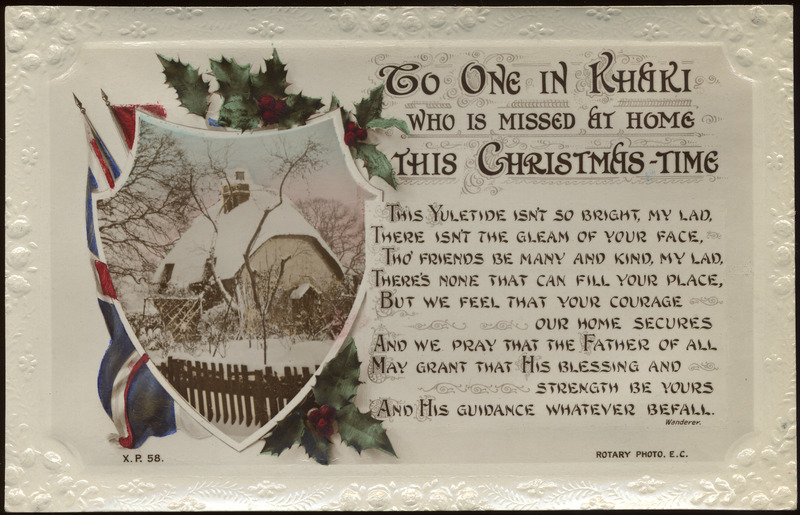 To One in Khaki
who is missed at home
this Christmas-time
This Yuletide isn't so bright, my lad,
There isn't the gleam of your face,
Tho' friends be many and kind, my lad,
There's none that can fill your place,
But we feel that your courage
our home secures
And we pray that the Father of all
May grant that His blessing and
strength be yours
And His guidance whatever befall.
Wanderer.
X.P. 58.
ROTARY PHOTO. E.C.